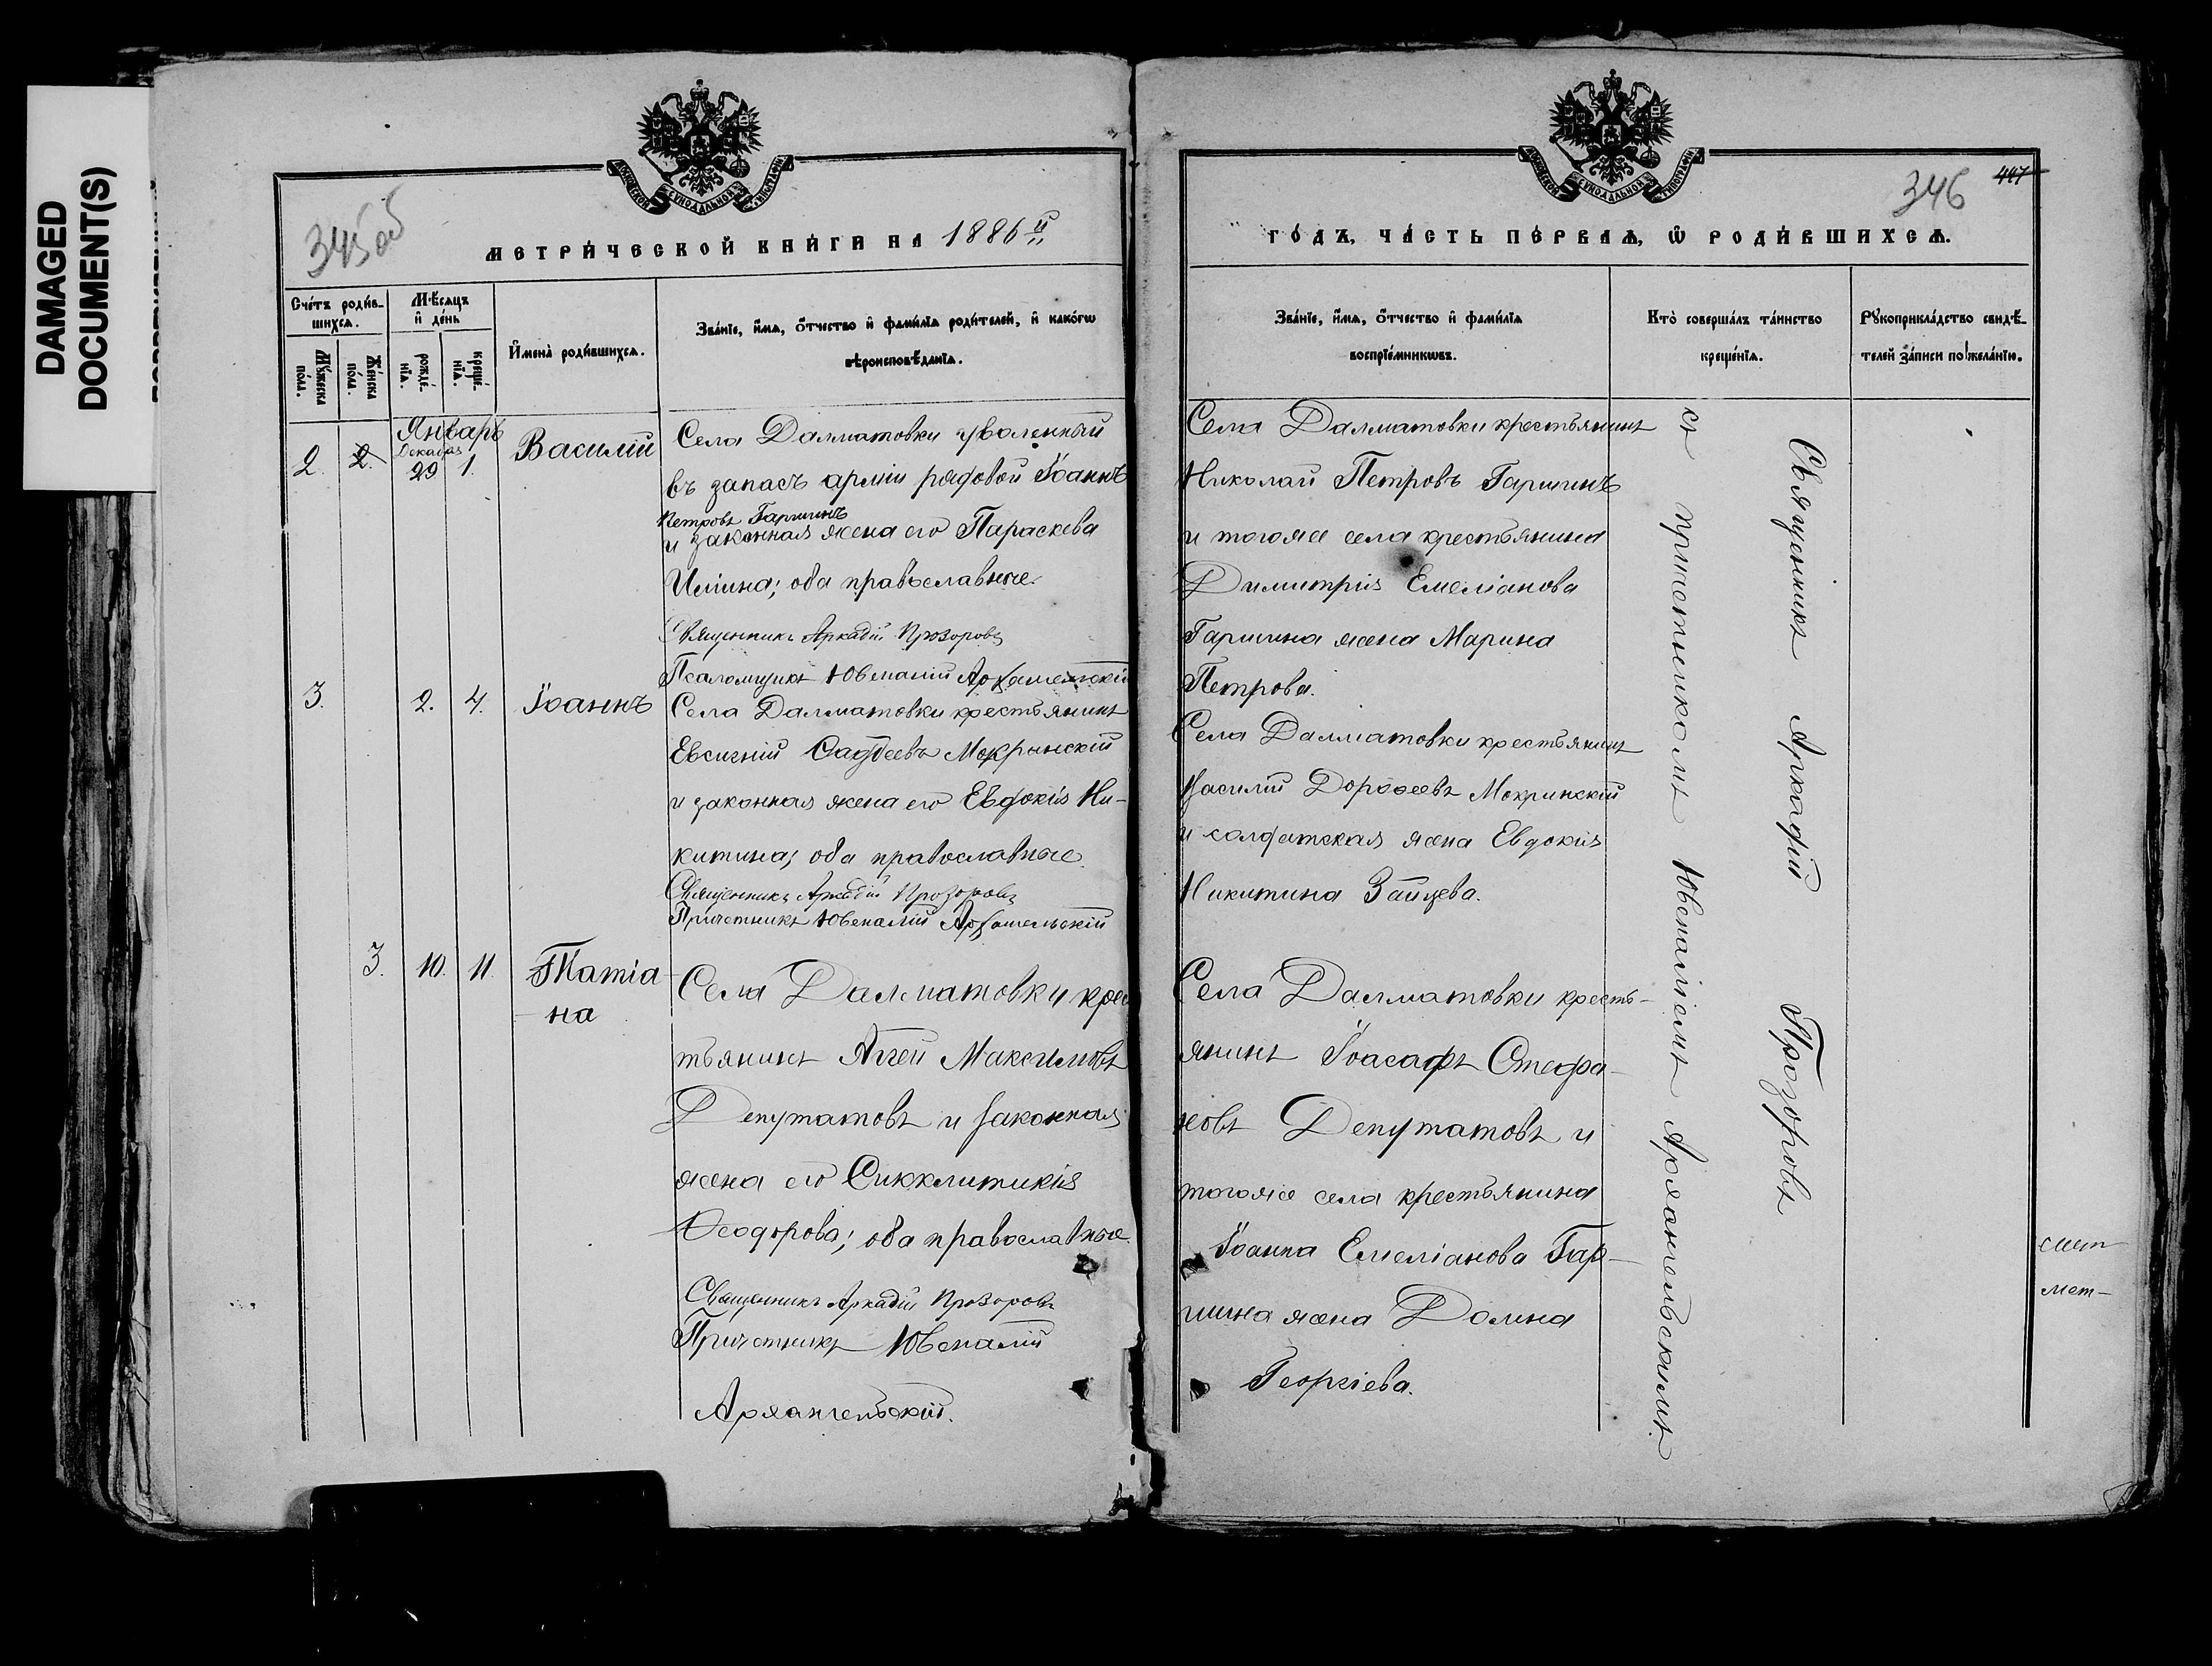 DAMAGED
DOCUMENT(S)
345 об
МЕТРИЧЕСКОЙ КНИГИ НА 1886 й
Счетъ родив-
шихся.
Мѣсяцъ
и день
Мужеска
полъ.
Женска
полъ.
рожде-
нія.
креще-
нія.
Имена родившихся.
Званіе, имя, отчество и фамилія родителей, и какогѡ
вѣроисповѣданія.
Январь
Декабря
2. 2. 29 1. Василій
Села Далматовки уволенный
въ запасъ арміи рядовой Іоаннъ
Петровъ Гаршинъ
и законная жена его Параскева
Иліина; оба православные.
Священникъ Аркадій Прозоровъ
Псаломщикъ Ювеналій Архангельскій
3. 2. 4. Іоаннъ
Села Далматовки крестьянинъ
Евсигній Мокрынскій
и законная жена его Евдокія Ни-
китина; оба православные.
Священникъ Аркадій Прозоровъ
Причетникъ Ювеналій Архангельскій
3. 10. 11. Татіа
на
Села Далматовки крес
тьянинъ Аггей Максимовъ
Депутатовъ и законная
жена его Сикклитикія
Ѳеодорова; оба православные.
Священникъ Аркадій Прозоровъ
Причетникъ Ювеналій
Архангельскій.
346 447
ГОДЪ, ЧАСТЬ ПЕРВАЯ, Ѡ РОДИВШИХСЯ.
Званіе, имя, отчество и фамилія
воспріемникѡвъ.
Кто совершалъ таинство
крещенія.
Рукоприкладство свидѣ-
телей записи по желанію.
Села Далматовки крестьянинъ
Николай Петровъ Гаршинъ
и тогоже села крестьянина
Димитрія Емеліанова
Гаршина жена Марина
Петрова.
Села Далматовки крестьянинъ
Василій Дороѳеевъ Мокринскій
и солдатская жена Евдокія
Никитина Зайцева.
Села Далматовки кресть-
янинъ Іоасафъ Стефа-
новъ Депутатовъ и
тогоже села крестьянина
Іоанна Емеліанова Гар-
шина жена Домна
Георгіева.
Священникъ Аркадій Прозоровъ
съ причетникомъ Ювеналіемъ Архангельскимъ